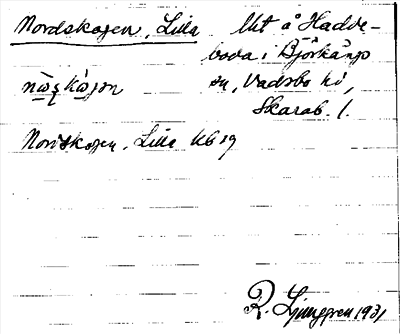 Nordskogen, Lilla
lht å Hadde-
boda i Björkäng
sn, Vadsbo hd,
Skarab. l.
Nordskogen, Lilla Kb 19
R. Ljunggren 1931